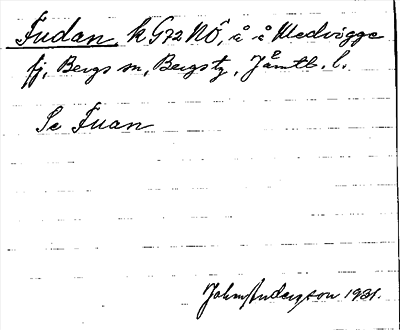 Fudan k G72 NÖ, å i Medvigge
fj, Bergs sn, Bergs tg, Jämtl. l.
Se Fuan
John Anderzson 1931.